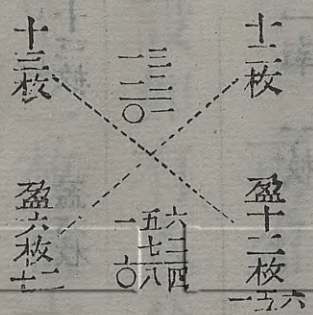 十二枚
一三
一二
〇一
十三枚
盈十二枚
一五六
一五六
七二
〇八四
盈六枚
七二